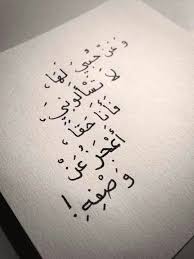 وَ عَنْ حُبِّي لَهَا،
لَا تَسْأَلُونِي،
فَأَنَا حَقًّا،
أَعْجَزُ عَنْ
وَصْفِهِ !